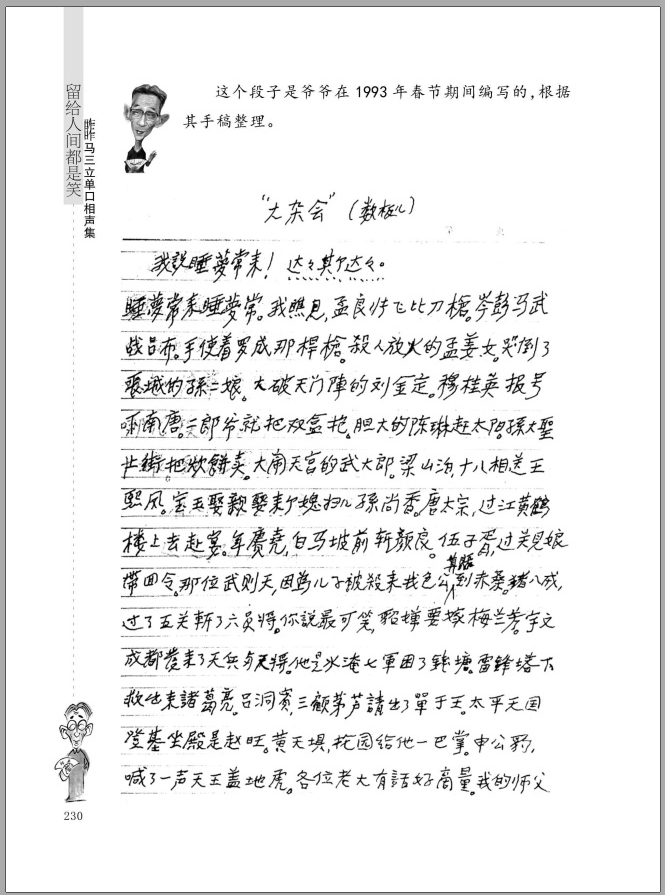 留给人间都是笑
昨昨马三立单口相声集
这个段子是爷爷在 1993 年春节期间编写的,根据
其手稿整理。
“大杂会”（数板儿）
我說睡夢常来！达々其个达々。
睡夢常来睡夢常。我瞧見,孟良焦飞比刀槍。岑彭马武
战吕布。手使着罗成那桿槍。殺人放火的孟姜女。哭倒了
長城的孫二娘。大破天门陣的刘金定。穆桂英报号
南唐。二郎爷就把双盒抱。胆大的陈琳赶太阳。孫大聖
上街,把炊餅卖。大闹天宫的武大郎。梁山泊,十八相送王
熙凤。宝玉娶親娶来个媳妇儿孫尚香。唐太宗,过江黄鶴
楼上去赴宴。年羹堯,白马坡前斩颜良。伍子胥,过关見娘
算賬
帶回令。那位武则天,因為儿子被殺来找包公到赤桑。猪八戒,
过了五关斬了六员将。你說最可笑,貂蝉要嫁梅兰芳。宇文
成都帶来了天兵与天将。他是水淹七軍困了錢塘。雷鋒塔下
救出来諸葛亮。吕洞賓,三顧茅芦請出了單于王。太平天国
登基坐殿是赵旺。黄天埧,花园给他一巴掌。申公豹,
喊了一声天王盖地虎。各位老大有話好商量。我的师父
230